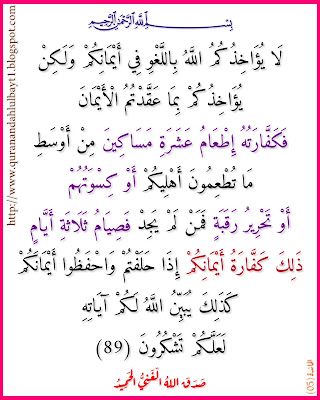 بِسْمِ اللَّهِ الرَّحْمَٰنِ الرَّحِيمِ
لَا يُؤَاخِذُكُمُ اللَّهُ بِاللَّغْوِ فِي أَيْمَانِكُمْ وَلَكِنْ
يُؤَاخِذُكُمْ بِمَا عَقَّدْتُمُ الْأَيْمَانَ
فَكَفَّارَتُهُ إِطْعَامُ عَشَرَةِ مَسَاكِينَ مِنْ أَوْسَطِ
مَا تُطْعِمُونَ أَهْلِيكُمْ أَوْ كِسْوَتُهُمْ
أَوْ تَحْرِيرُ رَقَبَةٍ فَمَنْ لَمْ يَجِدْ فَصِيَامُ ثَلَاثَةِ أَيَّامٍ
ذَلِكَ كَفَّارَةُ أَيْمَانِكُمْ إِذَا حَلَفْتُمْ وَاحْفَظُوا أَيْمَانَكُمْ
كَذَلِكَ يُبَيِّنُ اللَّهُ لَكُمْ آيَاتِهِ
لَعَلَّكُمْ تَشْكُرُونَ (89)
صَدَقَ اللهُ الْغَنِيُّ الْحَمِيدُ
http://www.quranandahlulbayt1.blogspot.com
المائدة (05)